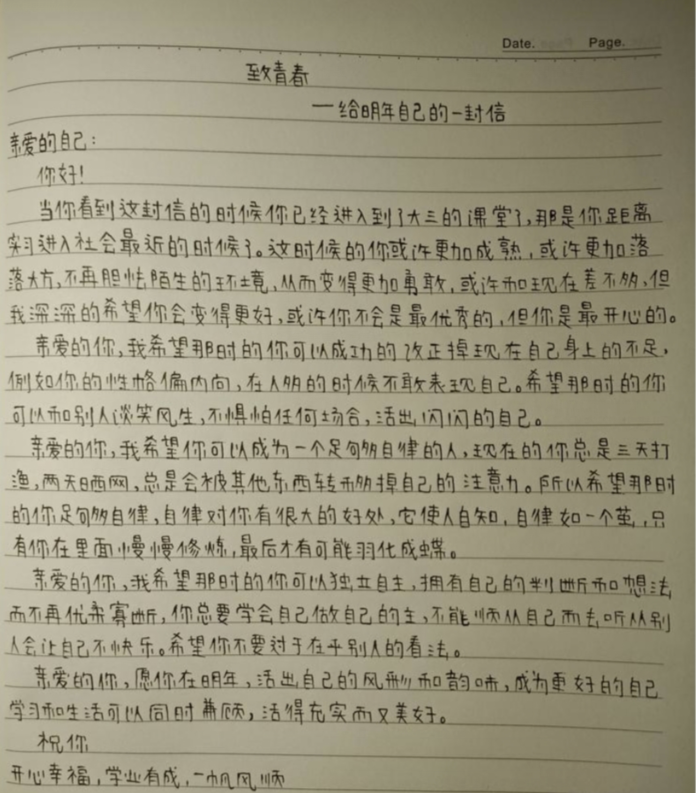 Date. Page.
致青春
一给明年自己的一封信
亲爱的自己:
你好!
当你看到这封信的时候你已经进入到了大三的课堂了,那是你距离
实习进入社会最近的时候了。这时候的你或许更加成熟,或许更加落
落大方,不再胆怯陌生的环境,从而变得更加勇敢,或许和现在差不多,但
我深深的希望你会变得更好,或许你不会是最优秀的,但你是最开心的。
亲爱的你,我希望那时的你可以成功的改正掉现在自己身上的不足,
例如你的性格偏内向,在人多的时候不敢表现自己。希望那时的你
可以和别人谈笑风生,不惧怕任何场合,活出闪闪的自己。
亲爱的你,我希望你可以成为一个足够自律的人,现在的你总是三天打
渔,两天晒网,总是会被其他东西转移掉自己的注意力。所以希望那时
的你足够自律,自律对你有很大的好处,它使人自知,自律如一个茧,只
有你在里面慢慢修炼,最后才有可能羽化成蝶。
亲爱的你,我希望那时的你可以独立自主,拥有自己的判断和想法
而不再优柔寡断,你总要学会自己做自己的主,不能顺从自己而去听从别
人会让自己不快乐。希望你不要过于在乎别人的看法。
亲爱的你,愿你在明年,活出自己的风彩和韵味,成为更好的自己
学习和生活可以同时兼顾,活得充实而又美好。
祝你
开心幸福,学业有成,一帆风顺